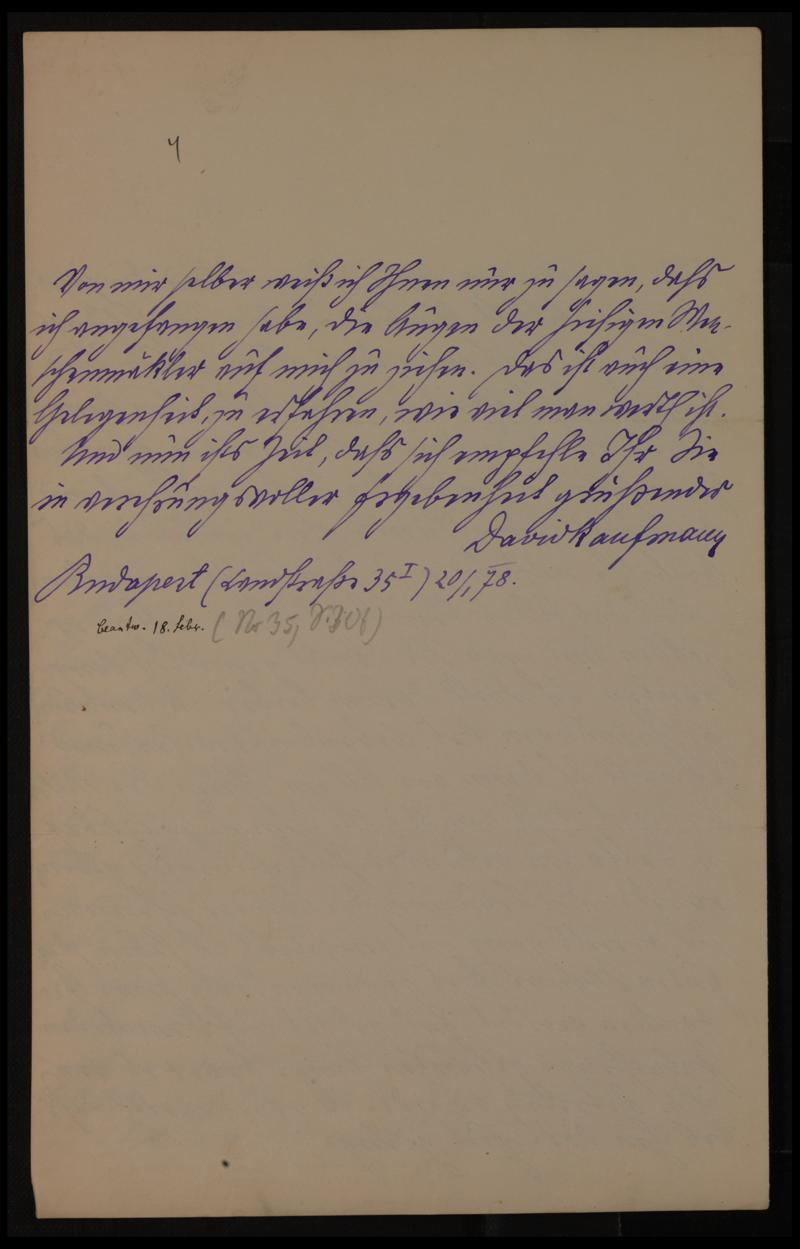 4
Von mir selber weiß ich Ihnen nur zu sagen, daß
ich angefangen habe, die Augen der hiesigen Men-
schenmäkler auf mich zu ziehen. Das ist auch eine
Gelegenheit, zu erfahren, wie viel man werth ist.
Und nun ists Zeit, daß sich empfehle Ihr Sie
in verehrungsvoller Ergebenheit grüßender
David Kaufmann
Budapest (Landstraße 35 I) 20/I, 78.
beantw. 18. Febr. (Nr 35,